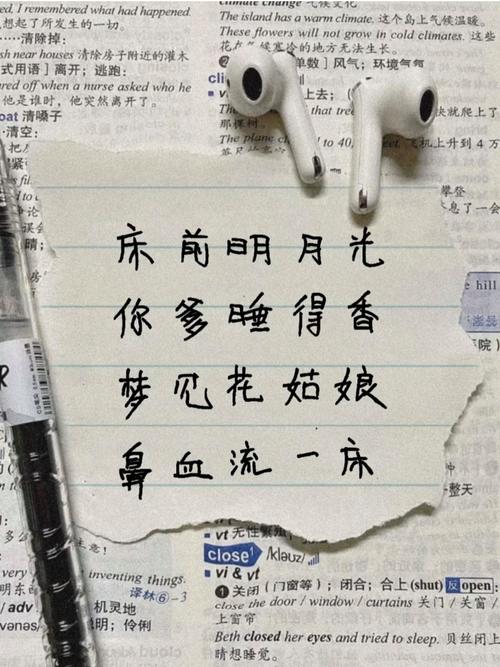 I remembered what had happened.
想起了所发生的一切。
climate 气候变化
The island has a warm climate. 这个岛上气候温暖。
These flowers will not grow in cold climates. 这些
花在气候寒冷的地方无法生长。
……清除掉:
sh near houses 清除房子附近的灌木
式用语] 离开; 逃跑:
ared off when a nurse asked who he
他是谁时, 他突然离开了。
oat 清嗓子
清空:
单数] 风气; 环境气氛
上去;
that tree
快就爬上了
那棵树。
The plane
to 40,
飞机上升到 4 万
攀登
息了一会
床前明月光
你爹睡得香
梦见花姑娘
鼻血流一床
e hill
医院)
整天
vt 无性繁殖
close¹ /kləʊz/
vi & vt
❶关闭 (门窗等); 闭合; 合上 (shut) 反 open:
close the door / window / curtains 关门 / 关窗 /
上窗帘
Beth closed her eyes and tried to sleep. 贝丝闭上
睛想睡觉。
very
inventing things.
明东的
译林⑥-3
/ adv
机灵地
聪明; 伶俐